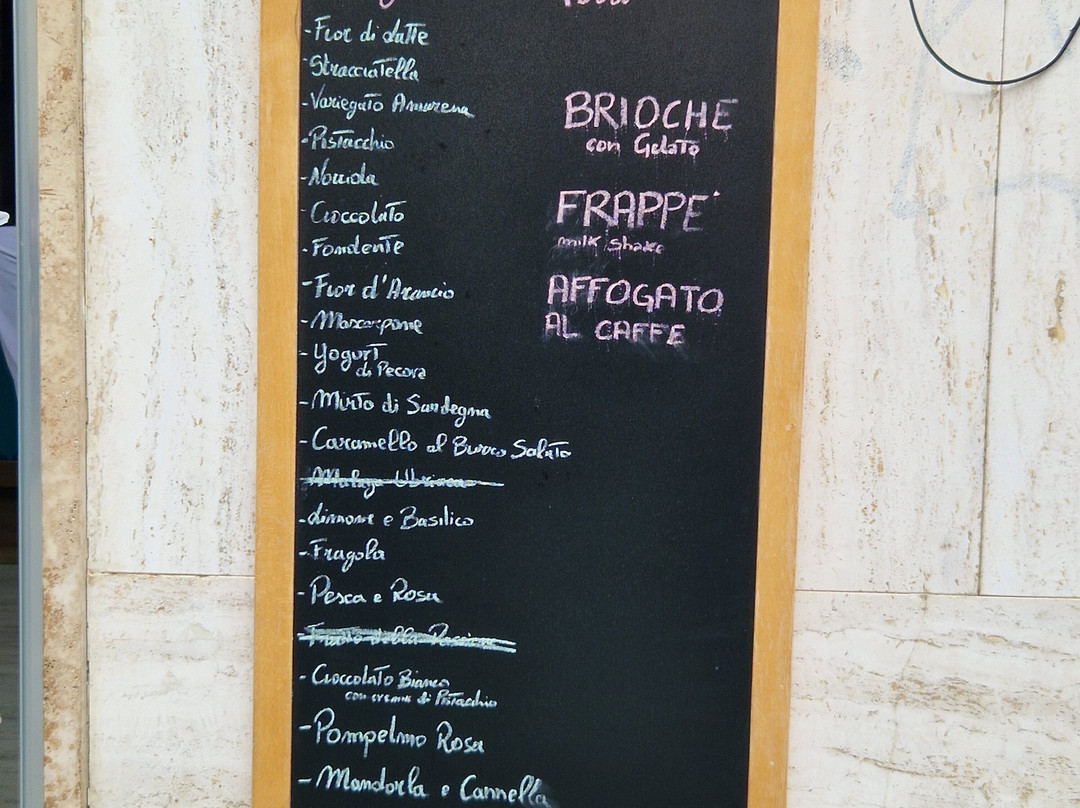 -Fior di latte
-Stracciatella
-Variegato Amarena
-Pistacchio
-Nocciola
-Cioccolato
-Fondente
-Fior d'Arancio
-Mascarpone
-Yogurt
di Pecora
-Mirto di Sardegna
-Caramello al Burro Salato
-Malaga Ubriaca
-Limone e Basilico
-Fragola
-Pesca e Rosa
-Frutto della Passione
-Cioccolato Bianco
con crema di Pistacchio
-Pompelmo Rosa
-Mandorla e Cannella
BRIOCHE
con Gelato
FRAPPE'
milk shake
AFFOGATO
AL CAFFE